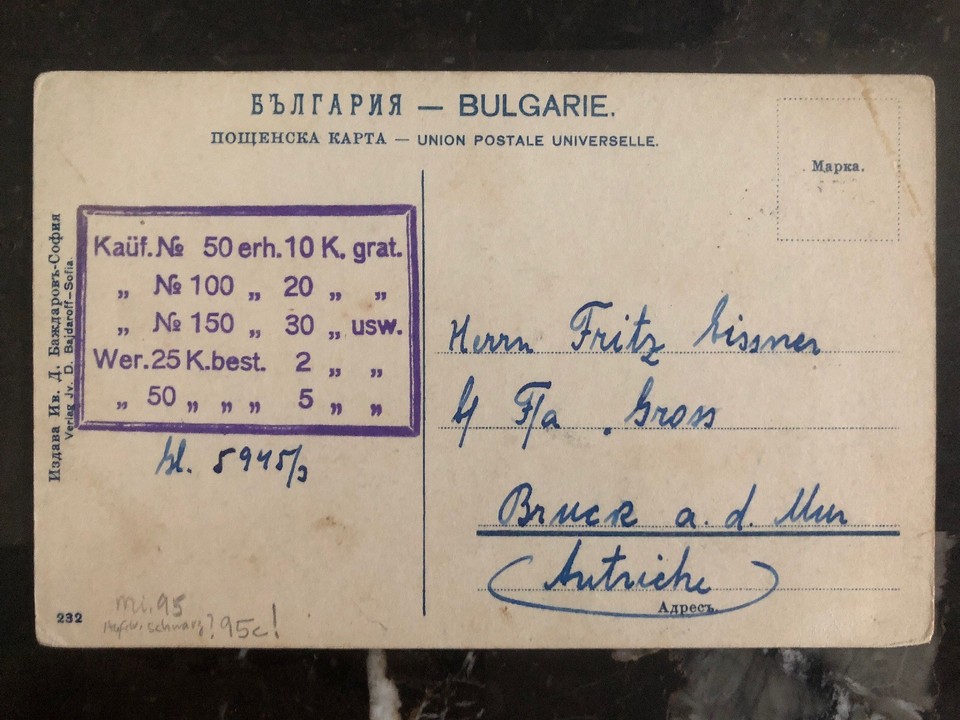 БЪЛГАРИЯ — BULGARIE.
ПОЩЕНСКА КАРТА — UNION POSTALE UNIVERSELLE.
Марка.
Издава Ив. Д. Баждаровъ-София
Verlag Jv. D. Bajdaroff-Sofia.
Kaüf. № 50 erh. 10 K. grat.
„ № 100 „ 20 „ „
„ № 150 „ 30 „ usw.
Wer. 25 K. best. 2 „ „
„ 50 „ „ „ 5 „ „
5945/
Herrn Fritz Eissner
b/ F/a Gross
Bruck a. d. Mur
Autriche
Адресъ.
232
Mi. 95
schwarz ? 95c!